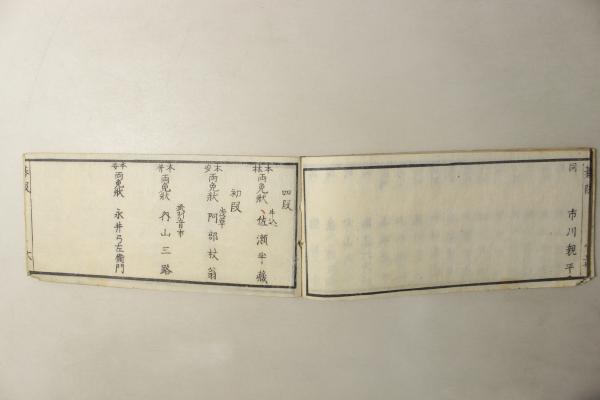 同 市川親平
四段
牛込
本林両免状 佐瀬半蔵
初段
浅草
本安両免状 阿部杖翁
本井両免状 内山三路
本安両免状 永井弓左衛門